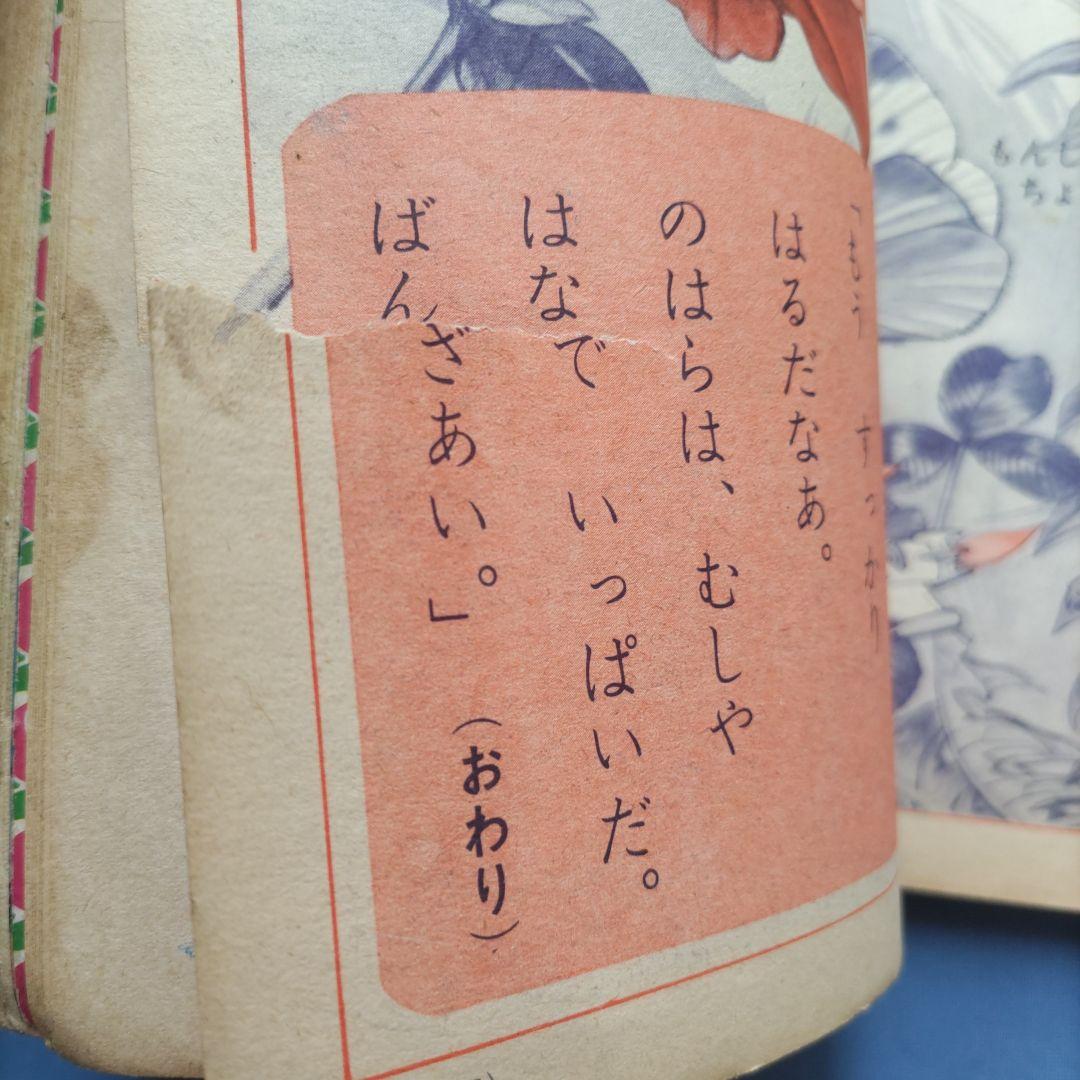 「もう すっかり
はるだなあ。
のはらは、むしや
はなで いっぱいだ。
ばんざあい。」
(おわり)
もんし
ちょ